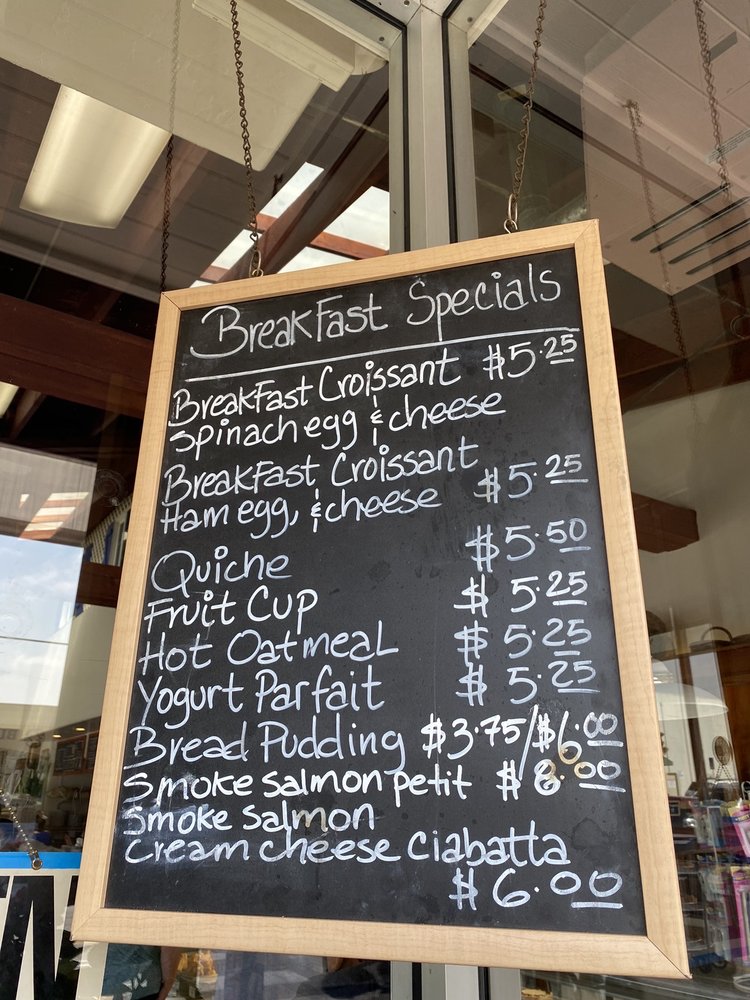 BreakFast Specials
BreakFast Croissant $5.25
Spinach egg & cheese
BreakFast Croissant
Ham egg, & cheese $5.25
Quiche $5.50
Fruit Cup $5.25
Hot Oatmeal $5.25
Yogurt Parfait $5.25
Bread Pudding $3.75/$6.00
Smoke salmon petit $8.00
Smoke salmon
Cream cheese Ciabatta
$6.00